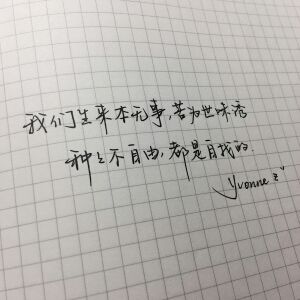 我们生来本无事,苦为世味诱
种种不自由,都是自找的.
yvonne